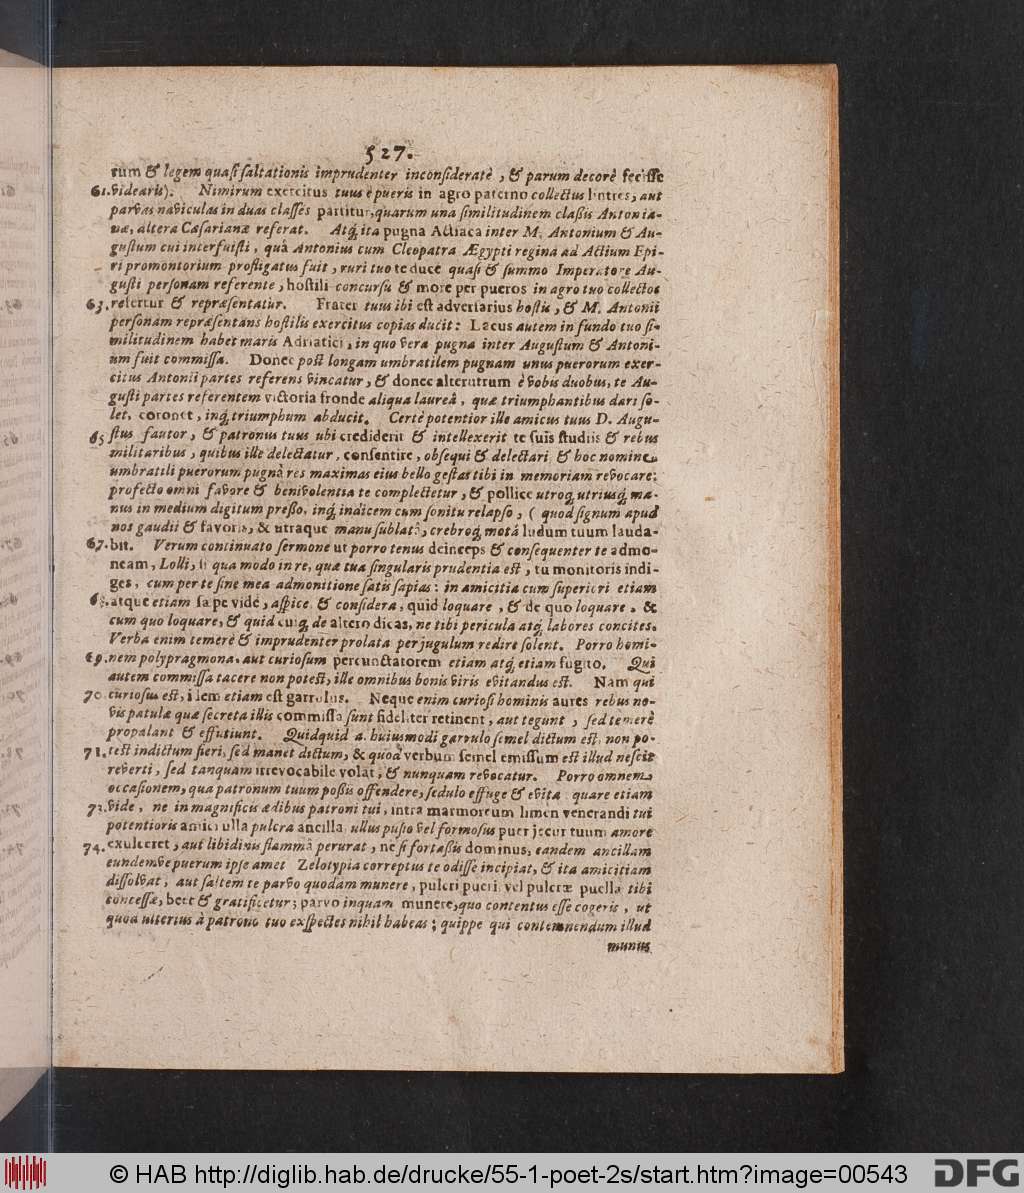 527.
rum & legem quasi saltationis imprudenter inconsideratè, & parum decorè fecisse
61. videaris). Nimirum exercitus tuus è pueris in agro paterno collectus lintres, aut
parvas naviculas in duas classes partitur, quarum una similitudinem classis Antonia-
næ, altera Cæsarianæ referat. Atq́ ita pugna Actiaca inter M. Antonium & Au-
gustum cui interfuisti, quâ Antonius cum Cleopatra Ægypti regina ad Actium Epi-
ri promontorium profligatus fuit, ruri tuo te duce quasi & summo Imperatore Au-
gusti personam referente, hostili concursu & more per pueros in agro tuo collectos
63. refertur & repræsentatur. Frater tuus ibi est adversarius hostis, & M. Antonii
personam repræsentans hostilis exercitus copias ducit: Lacus autem in fundo tuo si-
militudinem habet maris Adriatici, in quo vera pugna inter Augustum & Antoni-
um fuit commissa. Donec post longam umbratilem pugnam unus puerorum exer-
citus Antonii partes referens vincatur, & donec alterutrum è vobis duobus, te Au-
gusti partes referentem victoria fronde aliqua laureâ, quæ triumphantibus dari so-
let, coronet, inq́ triumphum abducit. Certè potentior ille amicus tuus D. Augu-
65 stus fautor, & patronus tuus ubi crediderit & intellexerit te suis studiis & rebus
militaribus, quibus ille delectatur, consentire, obsequi & delectari, & hoc nomine
umbratili puerorum pugnâ res maximas eius bello gestas tibi in memoriam revocare:
profecto omni favore & benivolentia te complectetur, & pollice utroq́ utriusq́ ma-
nus in medium digitum presso, inq́ indicem cum sonitu relapso, (quod signum apud
nos gaudii & favoris, & utraque manu sublatâ, crebroq́ motâ ludum tuum lauda-
67. bit. Verum continuato sermone ut porro tenus deinceps & consequenter te admo-
neam, Lolli, si qua modo in re, quæ tua singularis prudentia est, tu monitoris indi-
ges, cum per te sine mea admonitione satis sapias: in amicitia cum superiori etiam
68. atque etiam sæpe vide, aspice & considera, quid loquare, & de quo loquare, &
cum quo loquare, & quid cuiq́ de altero dicas, ne tibi pericula atq́ labores concites.
Verba enim temerè & imprudenter prolata per jugulum redire solent. Porro homi-
69. nem polypragmona, aut curiosum percunctatorem etiam atq́ etiam fugito. Qui
autem commissa tacere non potest, ille omnibus bonis viris evitandus est. Nam qui
70. curiosus est, idem etiam est garrulus. Neque enim curiosi hominis aures rebus no-
vis patulæ quæ secreta illis commissa sunt fideliter retinent, aut tegunt, sed temerè
propalant & effutiunt. Quidquid a. huiusmodi garrulo semel dictum est, non po-
71. test indictum fieri, sed manet dictum, & quod verbum semel emissum est illud nescit
reverti, sed tanquam irrevocabile volat, & nunquam revocatur. Porro omnem
occasionem, qua patronum tuum possis offendere, sedulo effuge & evita: quare etiam
73. vide, ne in magnificis ædibus patroni tui, intra marmoreum limen venerandi tui
potentioris amici ulla pulcra ancilla, ullus pusio vel formosus puer jecur tuum amore
74. exulceret, aut libidinis flammâ perurat, ne si fortassis dominus, eandem ancillam
eundemve puerum ipse amet Zelotypia correptus te odisse incipiat, & ita amicitiam
dissolvat, aut saltem te parvo quodam munere, pulcri pueri, vel pulcræ puellæ tibi
concessæ, beet & gratificetur; parvo inquam munere, quo contentus esse cogeris, ut
quod ulterius à patrono tuo exspectes nihil habeas; quippe qui contemnendum illud
munus
© HAB http://diglib.hab.de/drucke/55-1-poet-2s/start.htm?image=00543 DFG